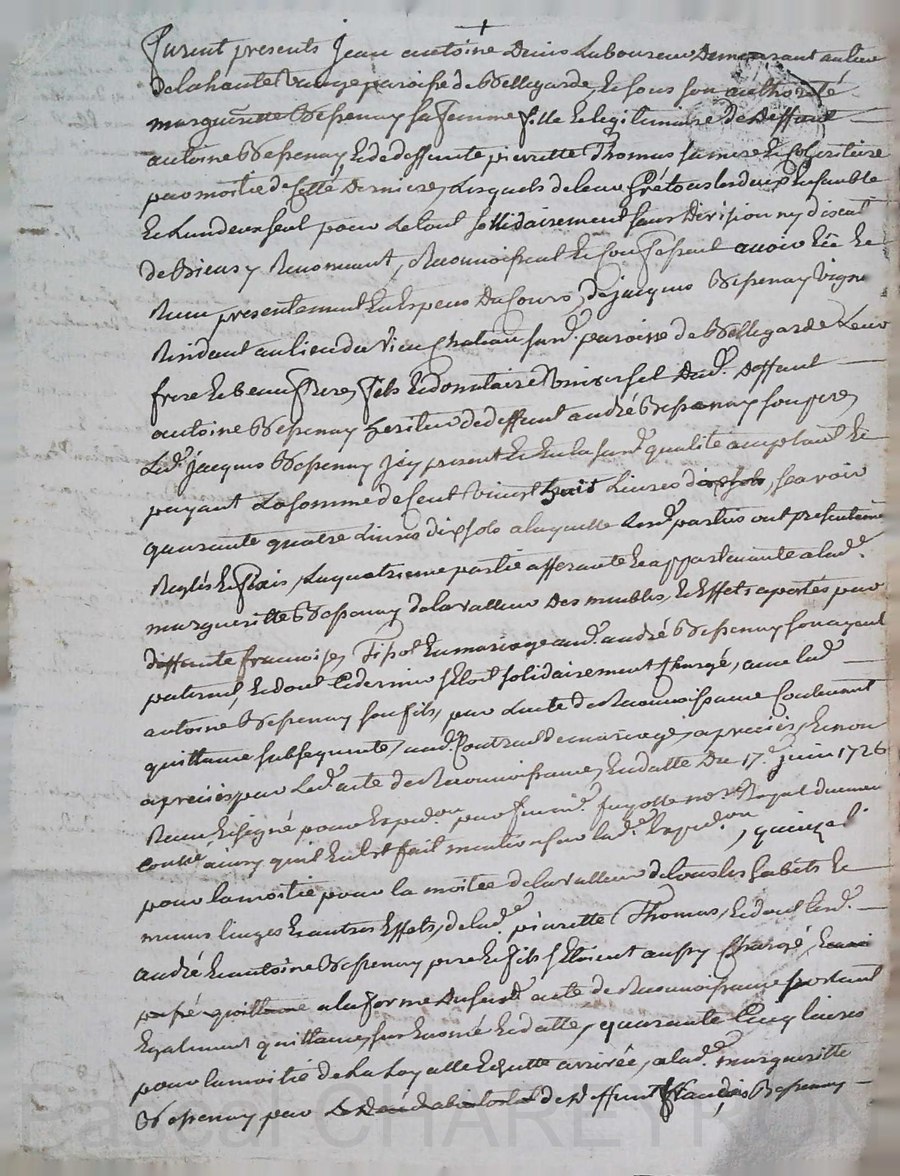 furent presents Jean antoine Denis Laboureur Demeurant au lieu
de la haute paroisse de Bellegarde, et sous son authorité
margueritte Bessenay sa femme fille et legitimaire de deffunt
antoine Bessenay, et de deffunte pierrette Thomas sa mere et cohéritiere
pour moitié de cette derniere, Lesquels de leur gré tous les deux Ensemble
et Lun deux seul pour Le tout sollidairement sans Division ny discution
de Biens y Renoncant, Reconnoissent et Confessent avoir Eu et
Receu presentement En Especes Du Cours, de jacques Bessenay Vigneron
Residant au lieu du Vieu Chateau susd. paroisse de Bellegarde Leur
frere et beau frere, fils et donnataire Universsel Dud. Deffunt
antoine Bessenay heritier de deffunt andré Bessenay son pere,
Led. jacques Bessenay jcy present et En la susd. qualité acceptant et
payant La somme de Cent Vingt huit Livres dix sols, scavoir
quarante quatre Livres dix sols a laquelle Lesd. parties ont presentement
Reglés et fixés, La quatrieme partie afferante et appartenante a lad.
margueritte Bessenay de la valleur Des meubles, et Effets aportés par
deffunte francoise, Tipot En mariage aud. andré Bessenay son ayeul
paternel, Et dont Ce dernier s'Etoit solidairement Chargé, avec led.
antoine Bessenay son fils, par acte de Reconnoissance Contenant
quittance subsequente, aud. Contract de mariage, apreciés, et non
apreciés par Led. acte de Reconnoissance, En datte Du 17.e juin 1726
Receu et signé pour Expedon. par feu me. fayolle nore. Royal
Controllé aussy quil En Est fait mention sur lad. Expedon, quinze l.
pour la moitié pour la moitée de la valleur de tous les habits et
menus linges Et autres Effets, de lad. pierrette Thomas, Et dont lesd.
andré Et antoine Bessenay pere et fils s'Etoient aussy Chargé,
passé quittance a la forme Du susd. acte de Reconnoissance portant
Egalement quittance, sus Enoncé Et datté, quarante Cinq livres
pour la moitié de La arrivée, a lad. margueritte
Bessenay par de Deffunt francois Bessenay
Pascal CHAREYRON